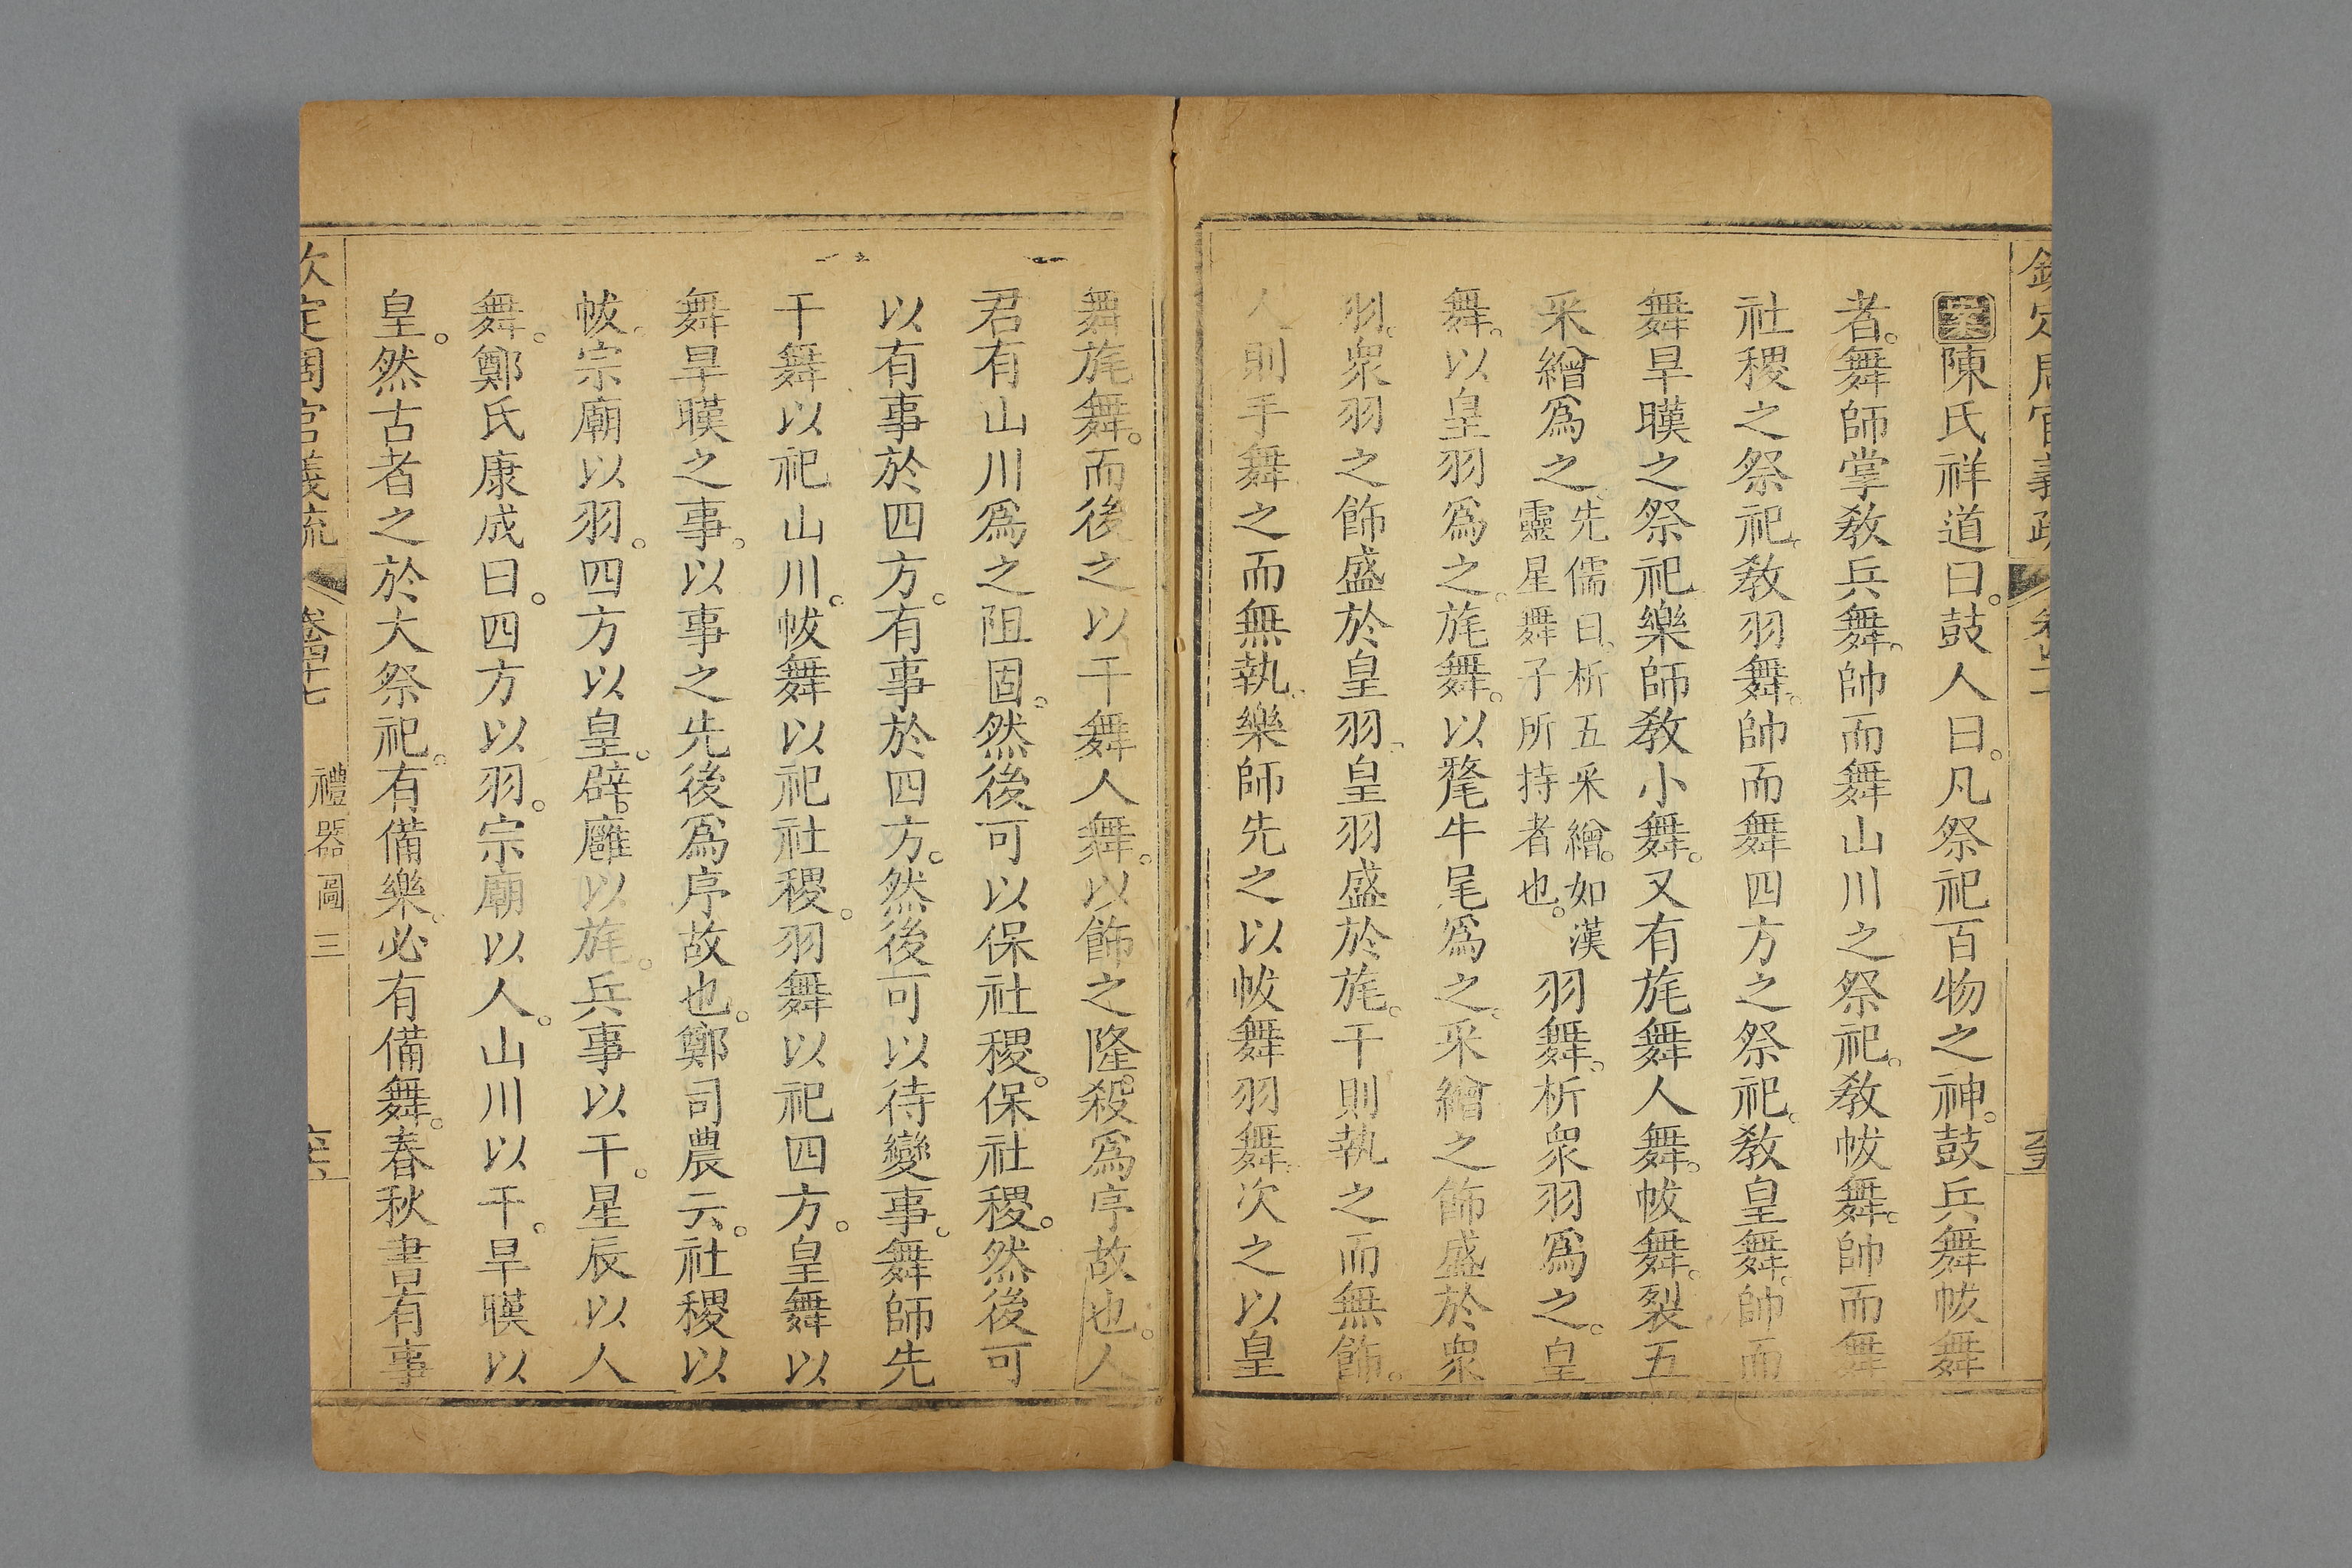 欽定周官義疏
案陳氏祥道曰。鼓人曰。凡祭祀百物之神。鼓兵舞帗舞
者。舞師掌教兵舞。帥而舞山川之祭祀。教帗舞。帥而舞
社稷之祭祀。教羽舞。帥而舞四方之祭祀。教皇舞。帥而
舞旱暵之祭祀。樂師教小舞。又有旄舞人舞。帗舞。裂五
采繒爲之。先儒曰。析五采繒。如漢靈星舞子所持者也。羽舞。析衆羽爲之。皇
舞。以皇羽爲之。旄舞。以氂牛尾爲之。采繒之飾盛於衆
羽。衆羽之飾盛於皇羽。皇羽盛於旄。干則執之而無飾。
人則手舞之而無執。樂師先之以帗舞羽舞。次之以皇
舞旄舞。而後之以干舞人舞。以飾之隆殺爲序故也。人
君有山川爲之阻固。然後可以保社稷。保社稷。然後可
以有事於四方。有事於四方。然後可以待變事。舞師先
干舞以祀山川。帗舞以祀社稷。羽舞以祀四方。皇舞以
舞旱暵之事。以事之先後爲序故也。鄭司農云。社稷以
帗。宗廟以羽。四方以皇。辟廱以旄。兵事以干。星辰以人
舞。鄭氏康成曰。四方以羽。宗廟以人。山川以干。旱暵以
皇。然古者之於大祭祀。有備樂。必有備舞。春秋書有事
欽定周官義疏 卷四十七 禮器圖三